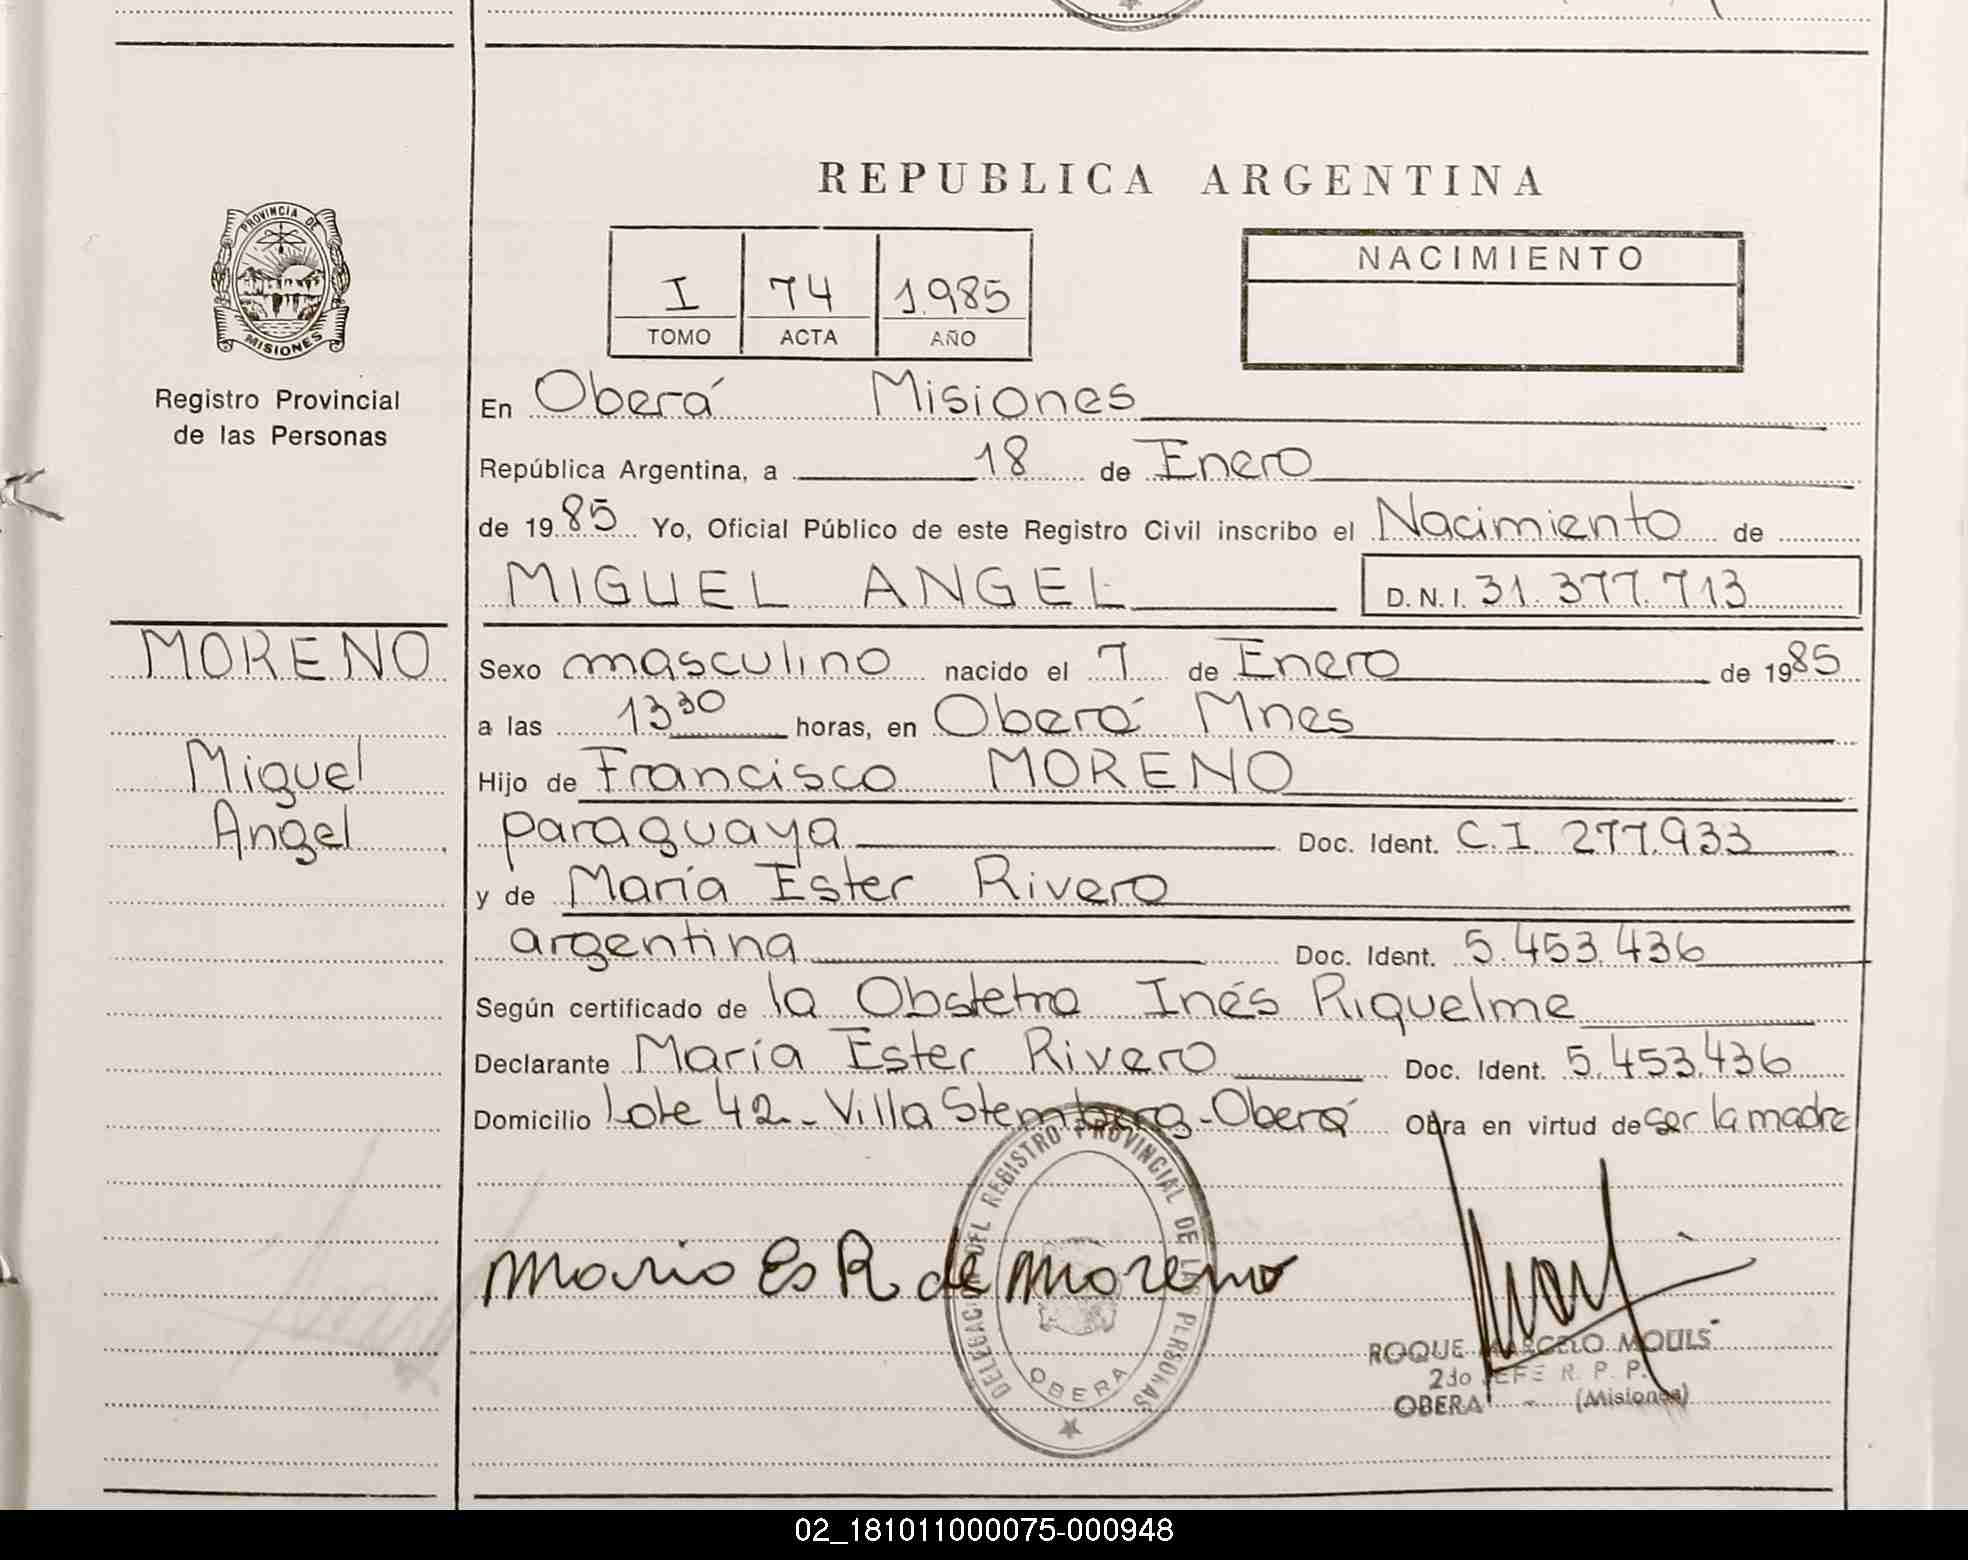 REPUBLICA ARGENTINA
PROVINCIA DE
MISIONES
Registro Provincial
de las Personas
I 74 1985
TOMO ACTA AÑO
NACIMIENTO
En Oberá Misiones
República Argentina, a 18 de Enero
de 1985 Yo, Oficial Público de este Registro Civil inscribo el Nacimiento de
MIGUEL ANGEL D.N.I. 31.377.713
MORENO
Miguel
Angel
Sexo masculino nacido el 7 de Enero de 1985
a las 13 30 horas, en Oberá Mnes
Hijo de Francisco MORENO
paraguaya Doc. Ident. C.I. 277.933
y de María Ester Rivero
argentina Doc. Ident. 5.453.436
Según certificado de la Obstetra Inés Riquelme
Declarante María Ester Rivero Doc. Ident. 5.453.436
Domicilio Lote 42 - Villa Stemberg - Oberá Obra en virtud de ser la madre
DELEGACION DEL REGISTRO PROVINCIAL DE LAS PERSONAS
OBERA
Maria Es R de Moreno
ROQUE MARCELO MOULS
2do JEFE R. P. P.
OBERA - (Misiones)
02_181011000075-000948